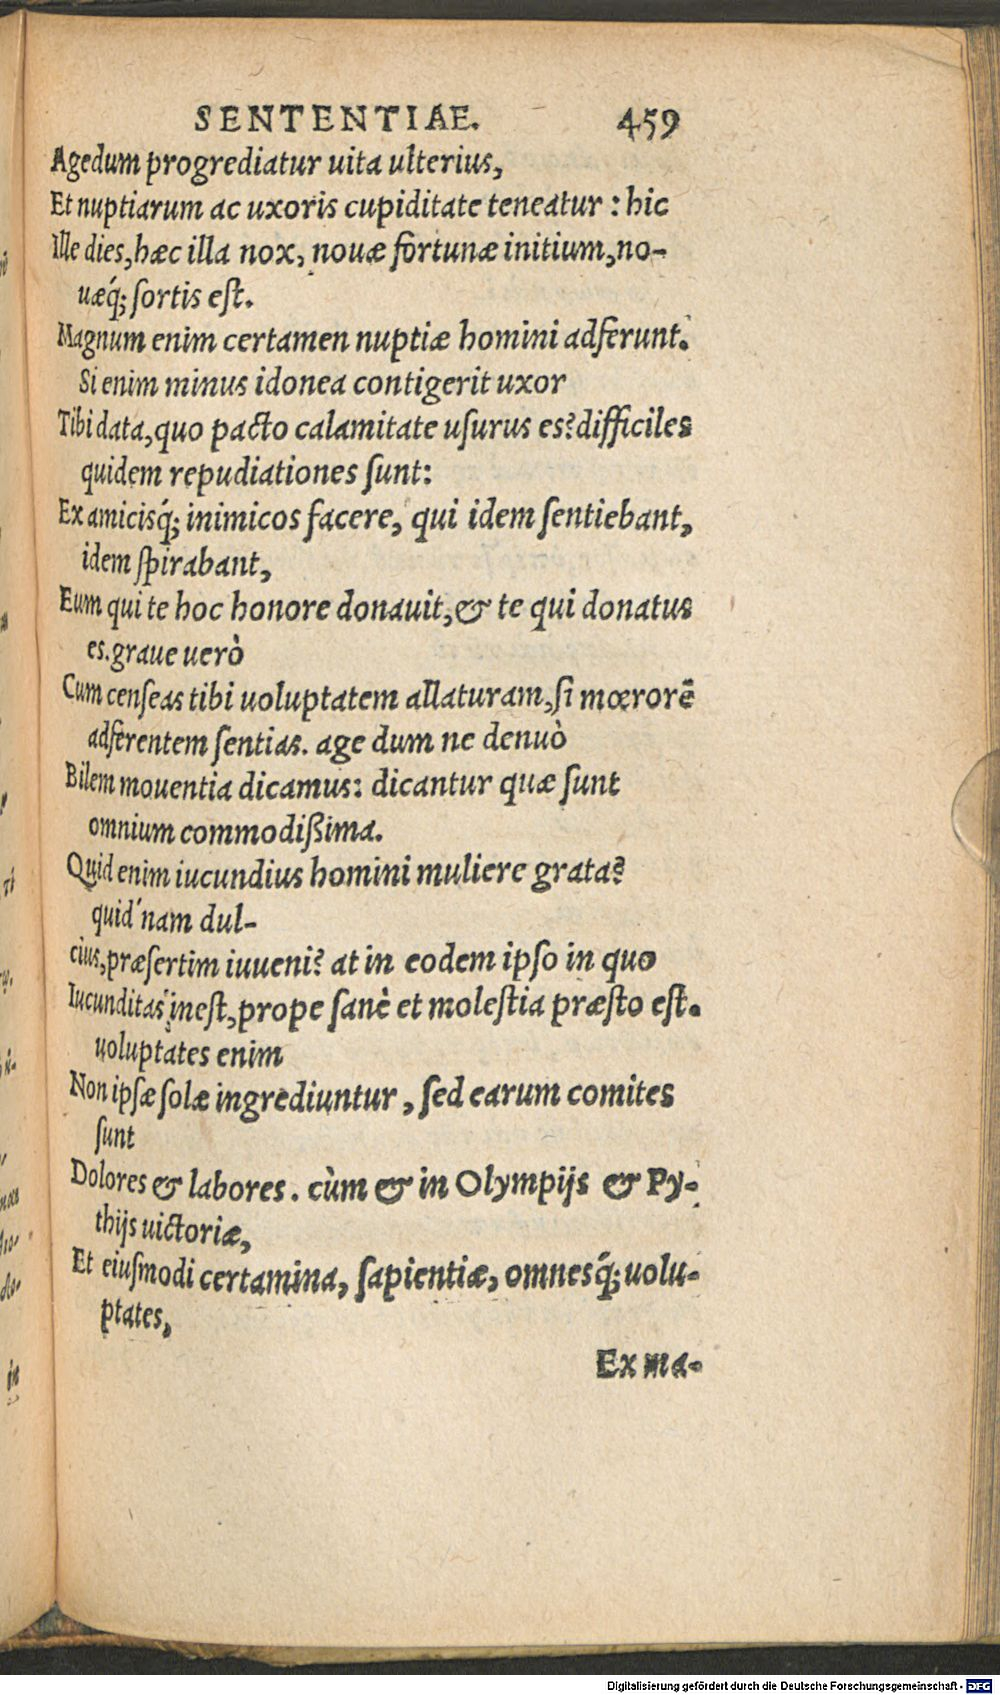 SENTENTIAE. 459
Agedum progrediatur uita ulterius,
Et nuptiarum ac uxoris cupiditate teneatur : hic
Ille dies, hæc illa nox, nouæ fortunæ initium, no-
uæq́; ſortis eſt.
Magnum enim certamen nuptiæ homini adferunt.
Si enim minus idonea contigerit uxor
Tibi data, quo pacto calamitate uſurus es? difficiles
quidem repudiationes ſunt:
Ex amicisq́; inimicos facere, qui idem ſentiebant,
idem ſpirabant,
Eum qui te hoc honore donauit, & te qui donatus
es. graue uerò
Cum cenſeas tibi uoluptatem allaturam, ſi mœrorē
adferentem ſentias. age dum ne denuò
Bilem mouentia dicamus: dicantur quæ ſunt
omnium commodißima.
Quid enim iucundius homini muliere grata?
quid nam dul-
cius, præſertim iuueni? at in eodem ipſo in quo
Iucunditas ineſt, prope ſanè et moleſtia præſto eſt.
uoluptates enim
Non ipſæ ſolæ ingrediuntur, ſed earum comites
ſunt
Dolores & labores. cùm & in Olympijs & Py-
thijs uictoriæ,
Et eiuſmodi certamina, ſapientiæ, omnesq́; uolu-
ptates,
Ex ma-
Digitalisierung gefördert durch die Deutsche Forschungsgemeinschaft - DFG